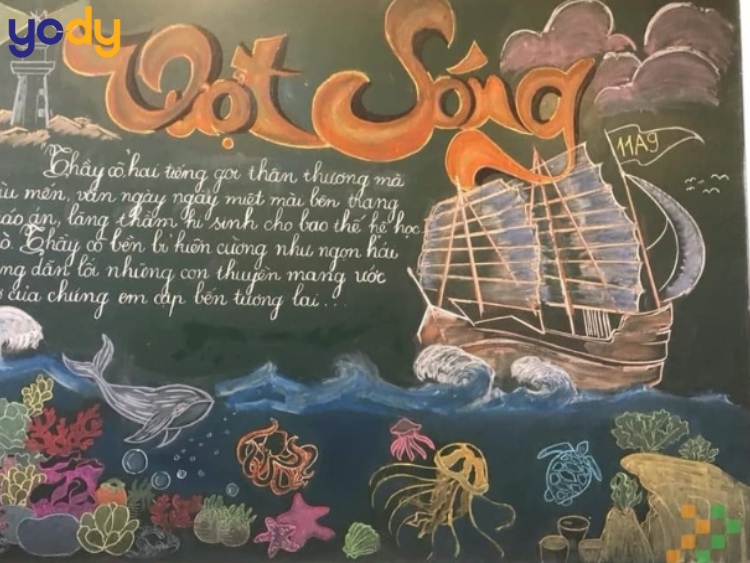 yody
Vượt Sóng
11A9
"Thầy cô" hai tiếng gọi thân thương mà
mến, vẫn ngày ngày miệt mài bên trang
án, lặng thầm hi sinh cho bao thế hệ học
Thầy cô bền bỉ kiên cường như ngọn hải
dẫn lối những con thuyền mang ước
của chúng em cập bến tương lai...